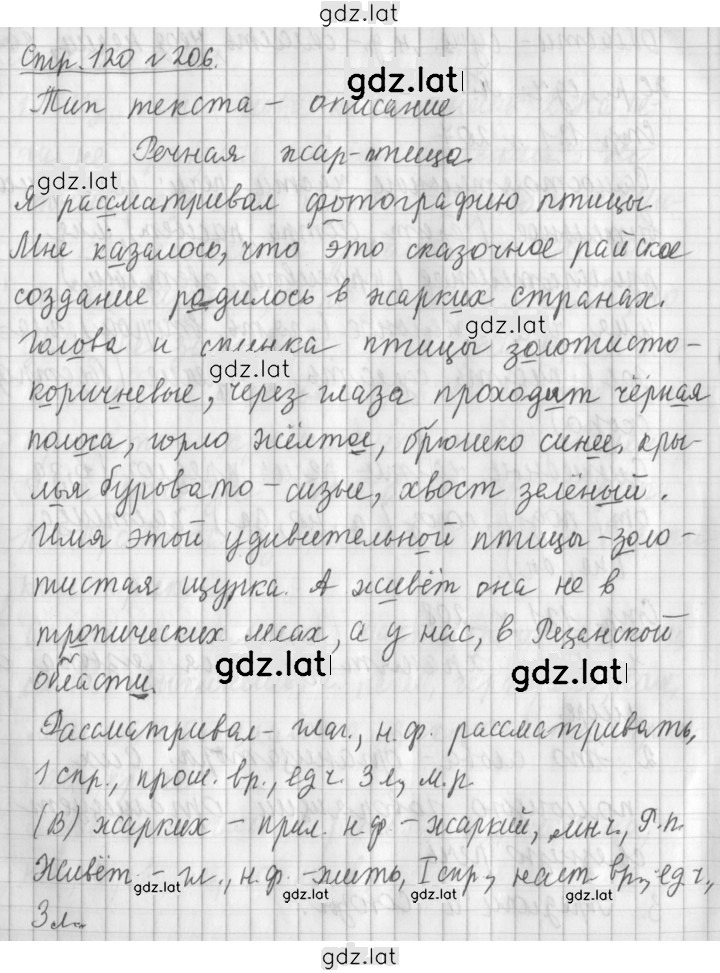 gdz.lat
Стр. 120 № 206.
gdz.lat
Тип текста – описание
Речная жар-птица.
gdz.lat
Я рассматривал фотографию птицы.
Мне казалось, что это сказочное райское
создание родилось в жарких странах.
gdz.lat
Голова и спинка птицы золотисто-
gdz.lat
коричневые, через глаза проходит чёрная
полоса, горло жёлтое, брюшко синее, кры-
лья буровато-сизые, хвост зелёный.
Имя этой удивительной птицы – золо-
тистая щурка. А живёт она не в
тропических лесах, а у нас, в Резанской
gdz.lat gdz.lat
области.
Рассматривал – глаг., н.ф. рассматривать,
1 спр., прош. вр., ед ч. 3 л, м.р.
(В) жарких – прил. н.ф – жаркий, мн.ч., Р.п.
Живёт – гл., н.ф. – жить, I спр, наст вр, ед ч,
gdz.lat gdz.lat gdz.lat
3 л.
gdz.lat